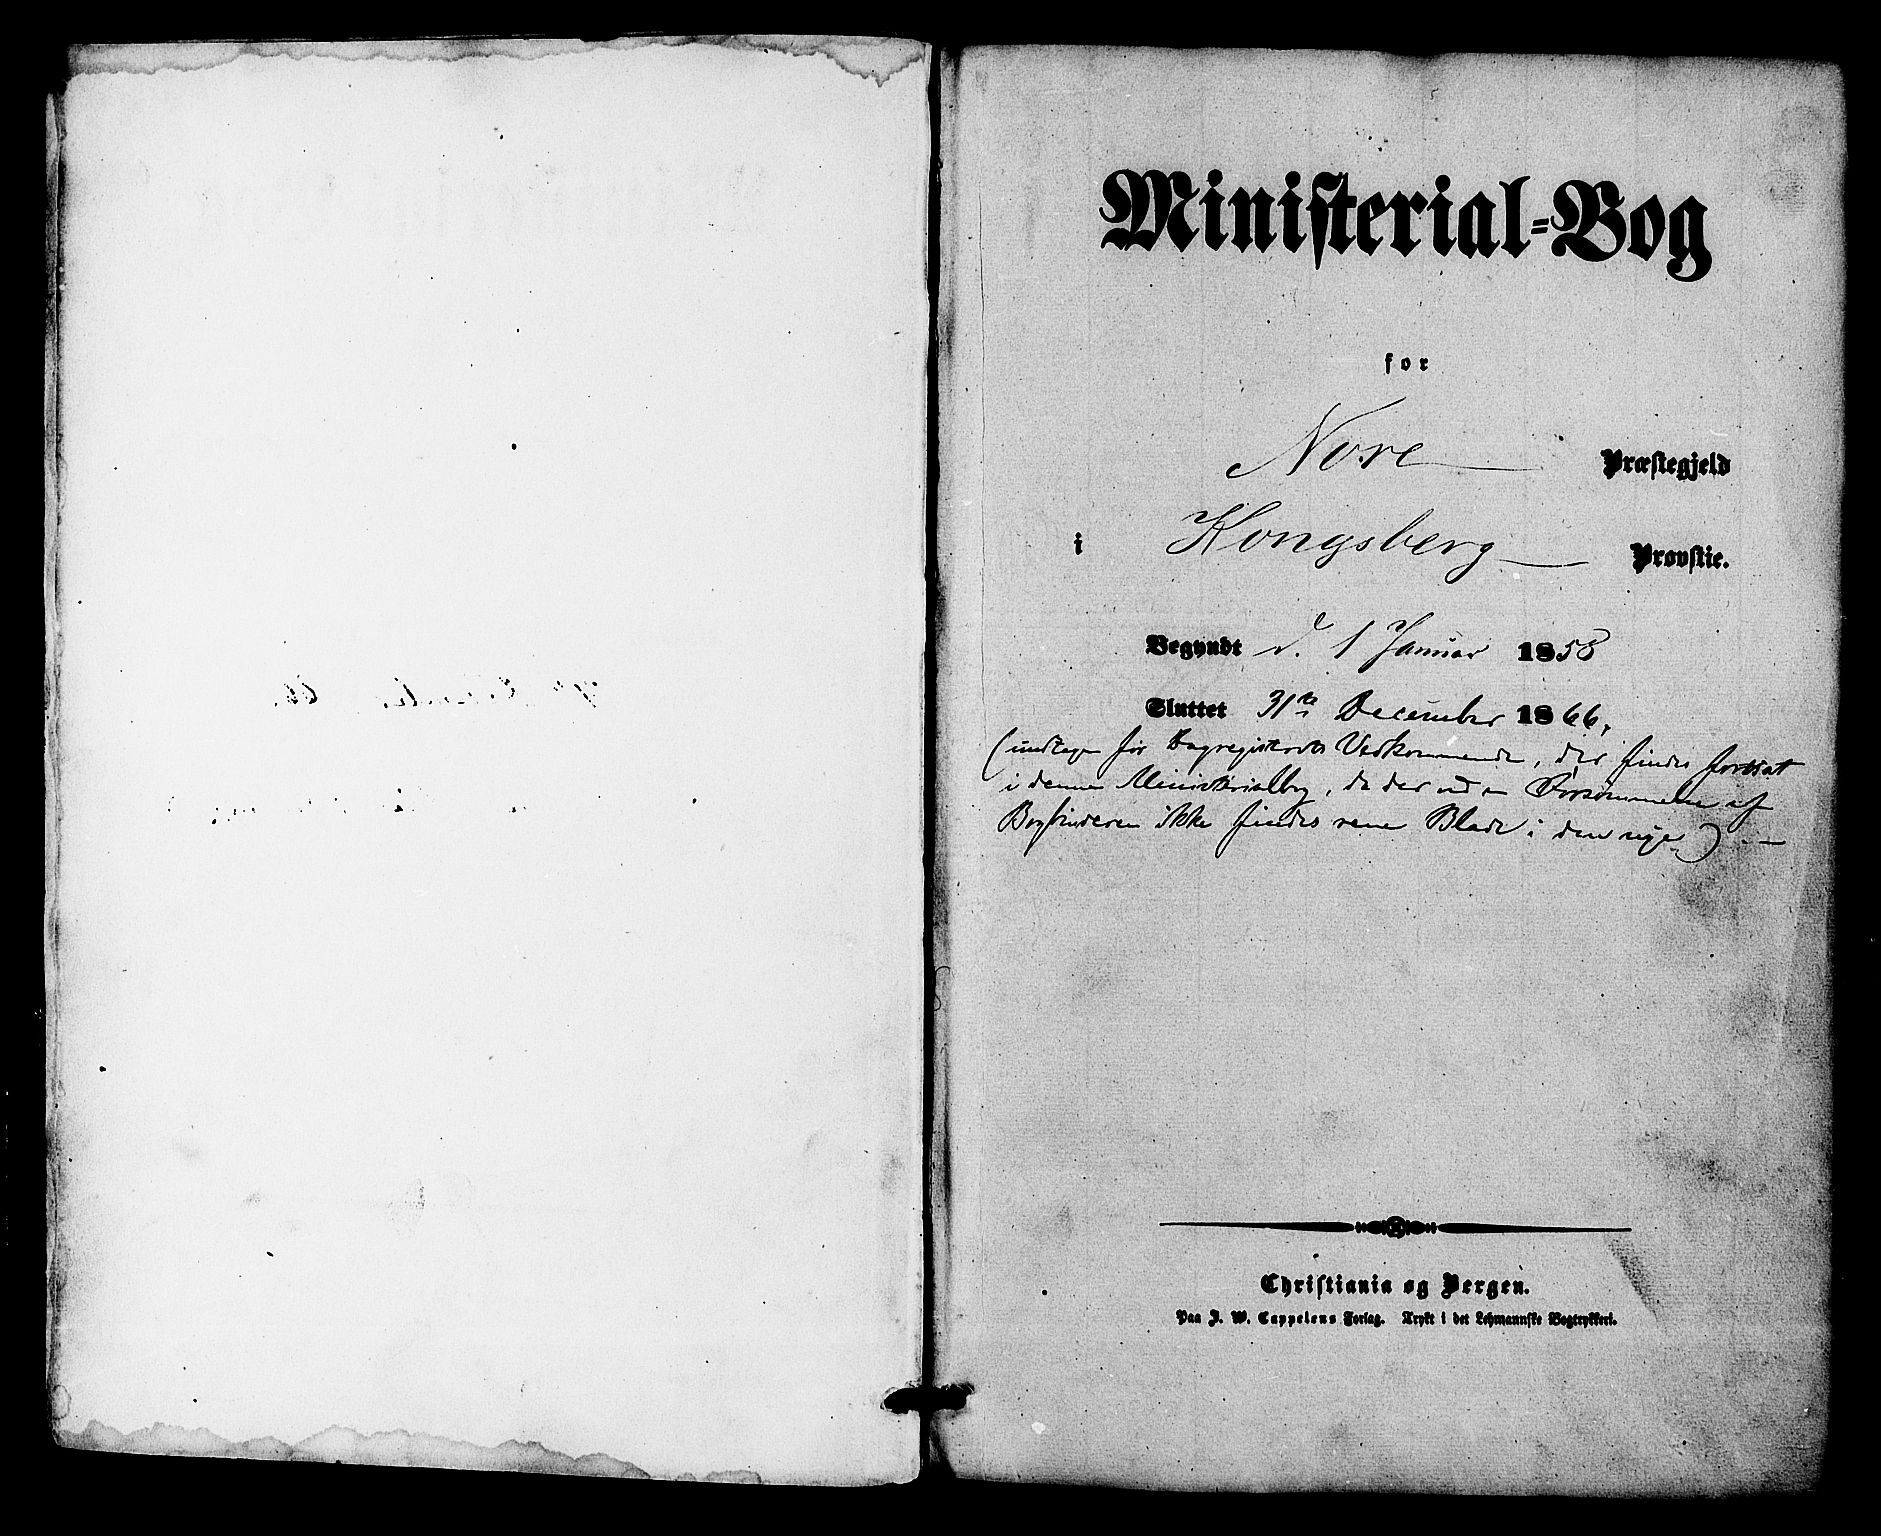 Ministerial-Bog
for
Nore Præstegjeld
i Kongsberg Provstie.
Begyndt d. 1 Januar 1858
Sluttet 31te December 1866,
(undtagen for Dagregisterets Vedkommende, der findes fortsat
i denne Ministerialbog, da der ved en Forsømmelse af
Bogbinderen ikke findes rene Blade i den nye) . —
Christiania og Bergen.
Paa J. W. Cappelens Forlag. Trykt i det Lehmannske Bogtrykkeri.